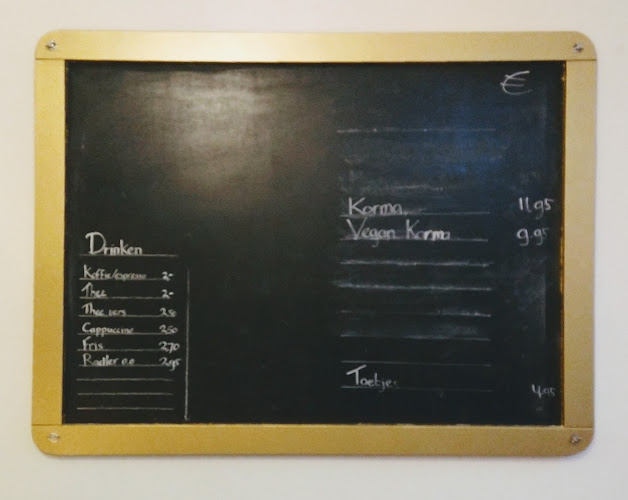 €
Korma. 11,95
Vegan Korma 9.95
Toetje. 4,95
Drinken
Koffie/espresso 2,-
Thee 2,-
Thee vers 2,50
Cappuccino 2,50
Fris 2,70
Radler 0.0 2,95